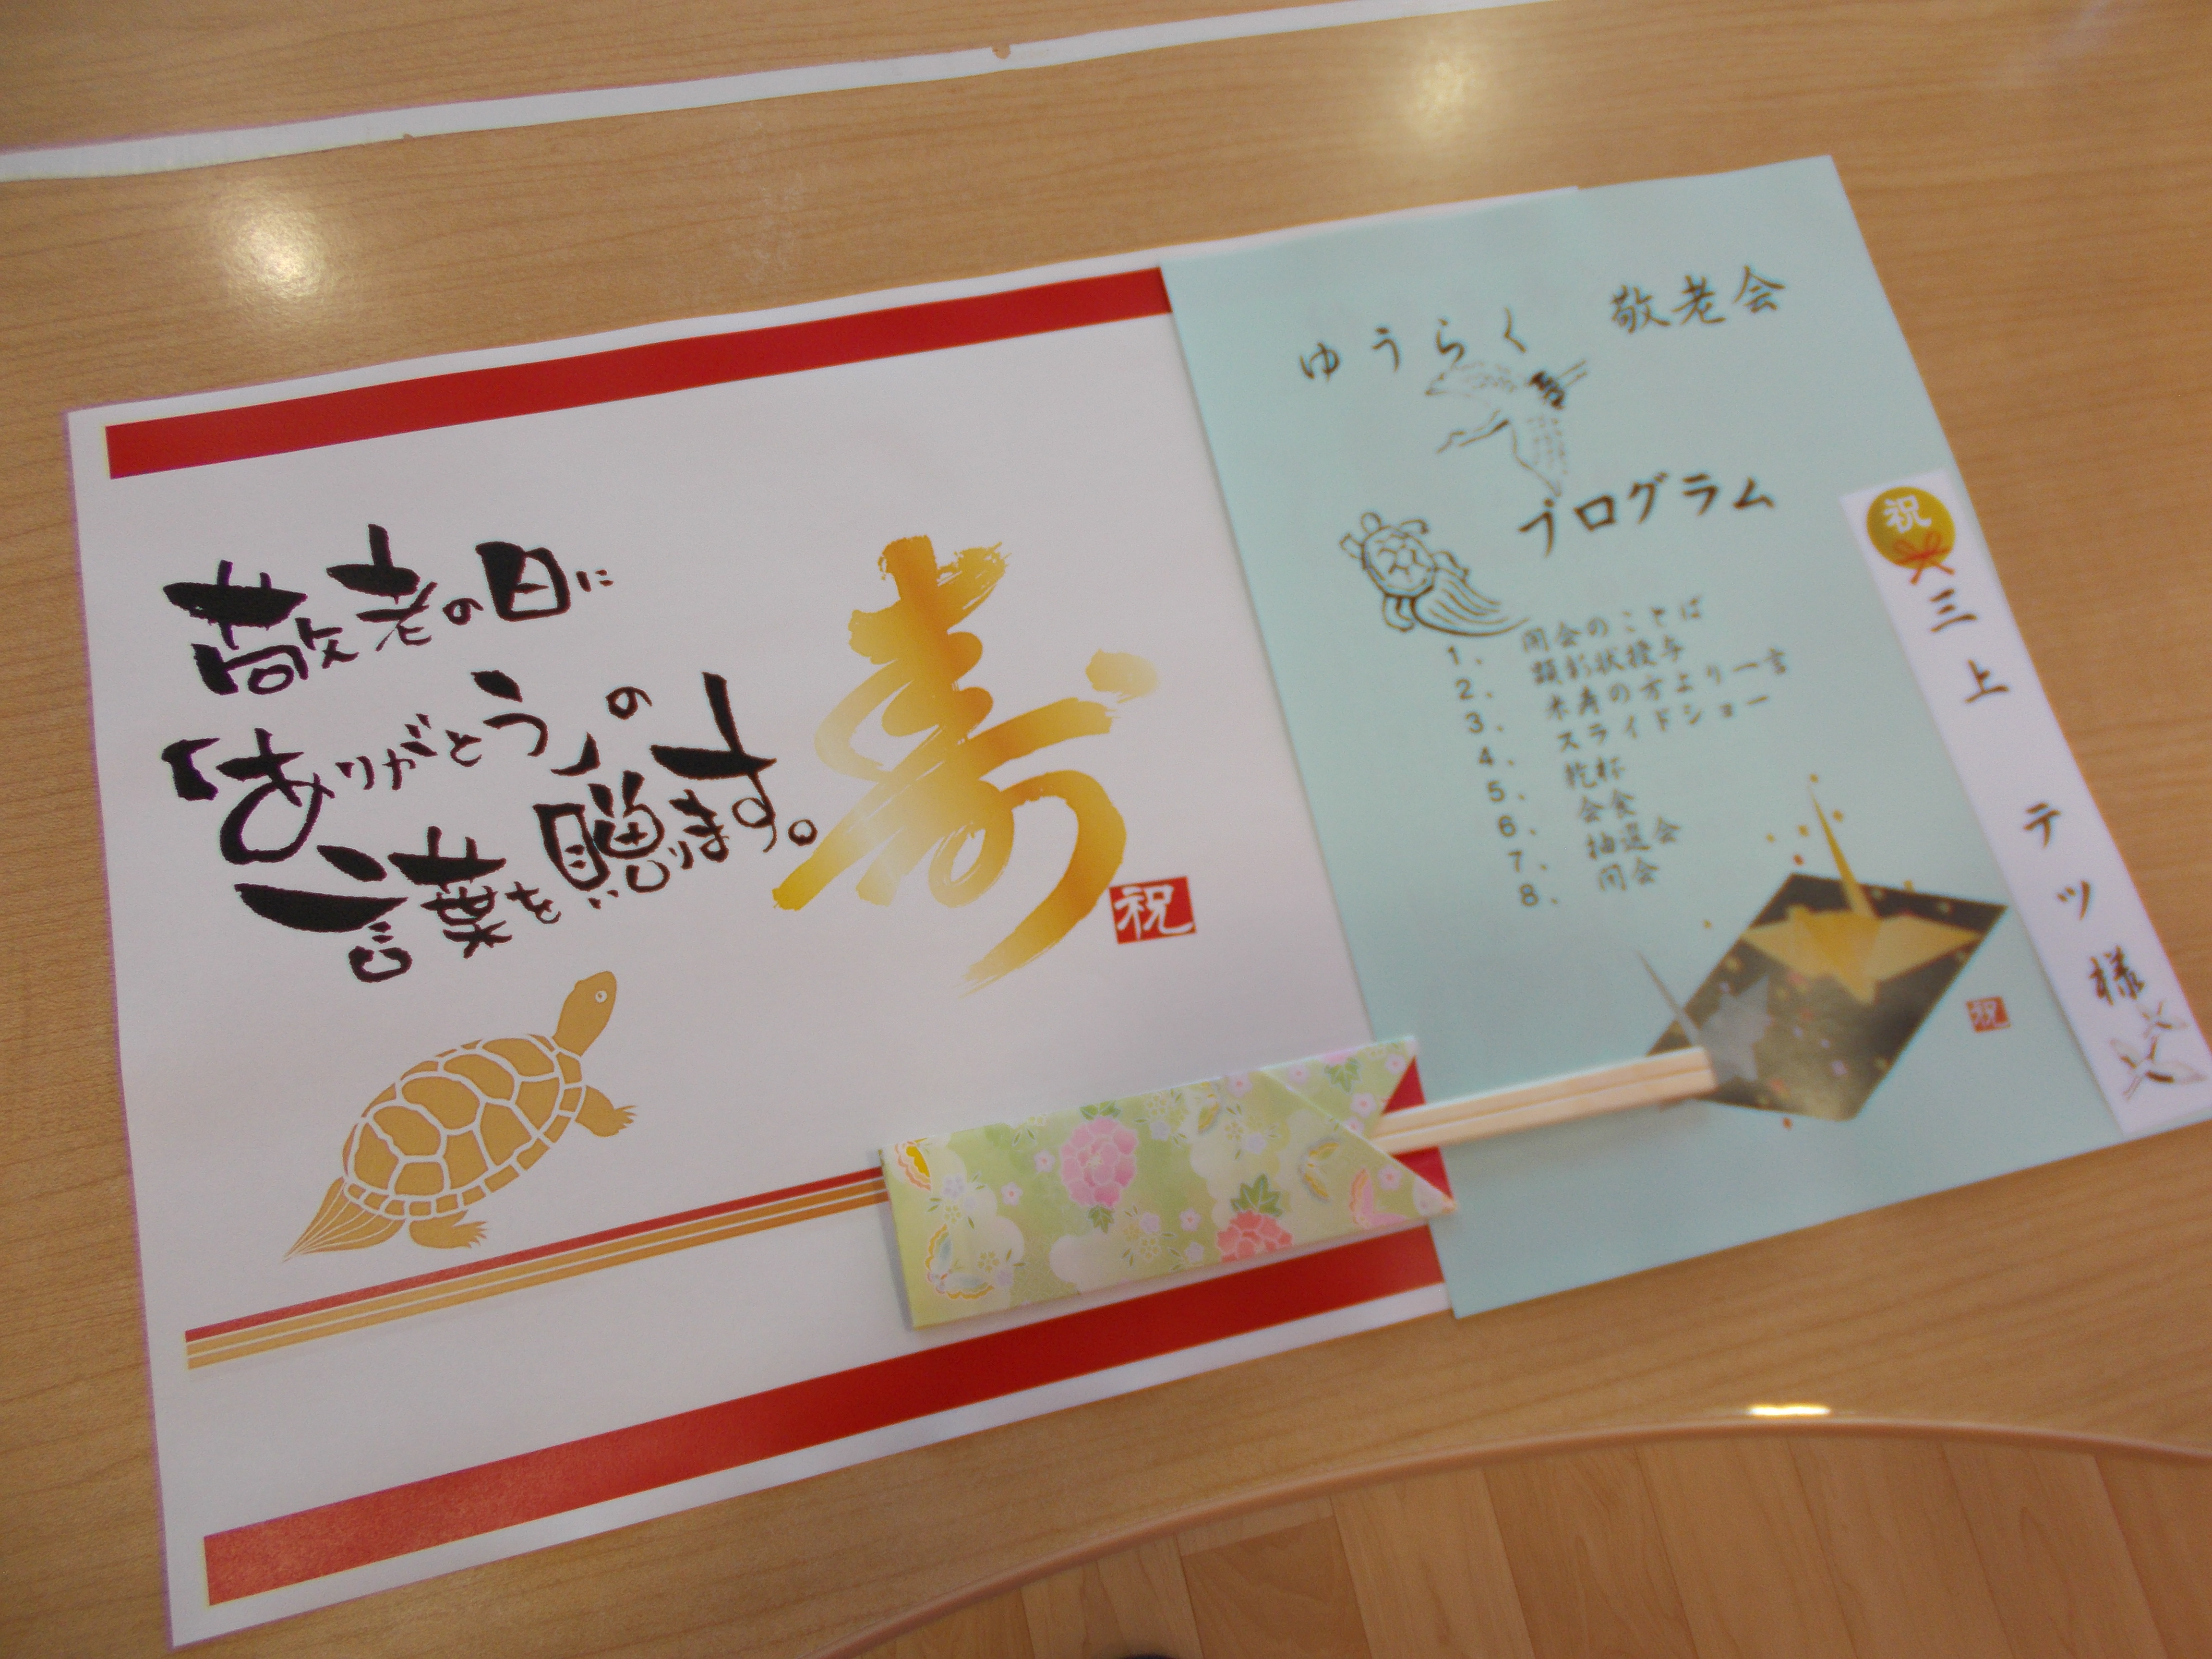 敬老の日に
「ありがとう」の
言葉を贈ります。
寿
祝
ゆうらく 敬老会
プログラム
1. 開会のことば
2. 顕彰状授与
3. 米寿の方より一言
4. スライドショー
5. 乾杯
6. 会食
7. 抽選会
8. 閉会
祝
祝
三上 テツ様